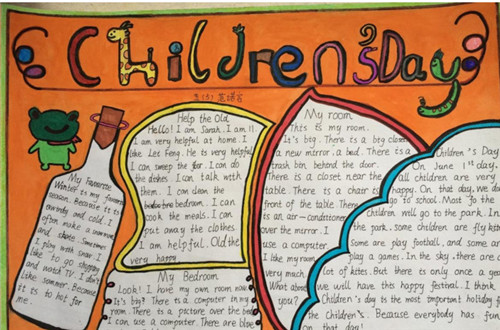 Children's Day
Help the Old
Hello! I am Sarah. I am 11.
I am very helpful at home. I
like Lei Feng. He is very helpful
I can sweep the floor. I can do
the dishes. I can talk with
them. I can clean the
bedroom. I can
cook the meals. I can
put away the clothes
I am helpful. Old the
very happy
My Bedroom
Look! I have my own room now.
It's big? There is a computer in my
room. There is a picture over the bed
I can use a computer. There are blue
My Favourite
Winter is my favourite
season. Because it is
and cold. I
often make a snowman
and skate. Sometimes
I play with snow. I
like to go shopping
and watch TV. I don't
like summer. Because
it is to hot for
me.
My room
This is my room.
It's big. There is a big closet
a new mirror, a bed. There is a
trash bin behind the door.
There is a closet near the
table. There is a chair is
front of the table. There
is an air-conditioner
over the mirror. I
use a computer.
I like my room
very much.
What about
you?
Children's Day
On June 1st day,
all children are very
happy. On that day, we don't
go to school. Most fo the
children will go to the park. In
the park, some children are flying kites
Some are play football, and some are
play a games. In the sky, there are a
lot of kites. But there is only once a year
we well have this happy festival. I think
Children's day is the most important holiday for
the children's. Because everybody has fun
on that day!